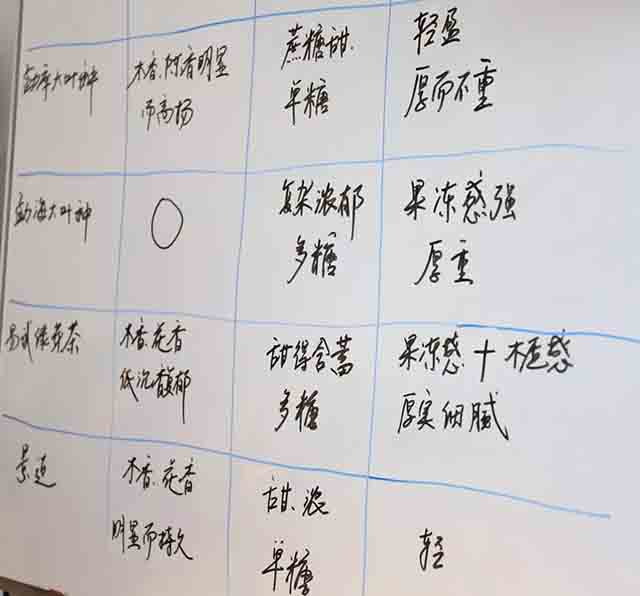 勐库大叶种
木香.附香明显
而高扬
蔗糖甜.
单糖
轻盈
厚而不重
勐海大叶种
复杂浓郁
多糖
果冻感强
厚重
易武绿芽茶
木香.花香
低沉馥郁
甜得含蓄
多糖
果冻感+木质感
厚实细腻
景迈
木香.花香
明显而持久
甜.浓
单糖
轻